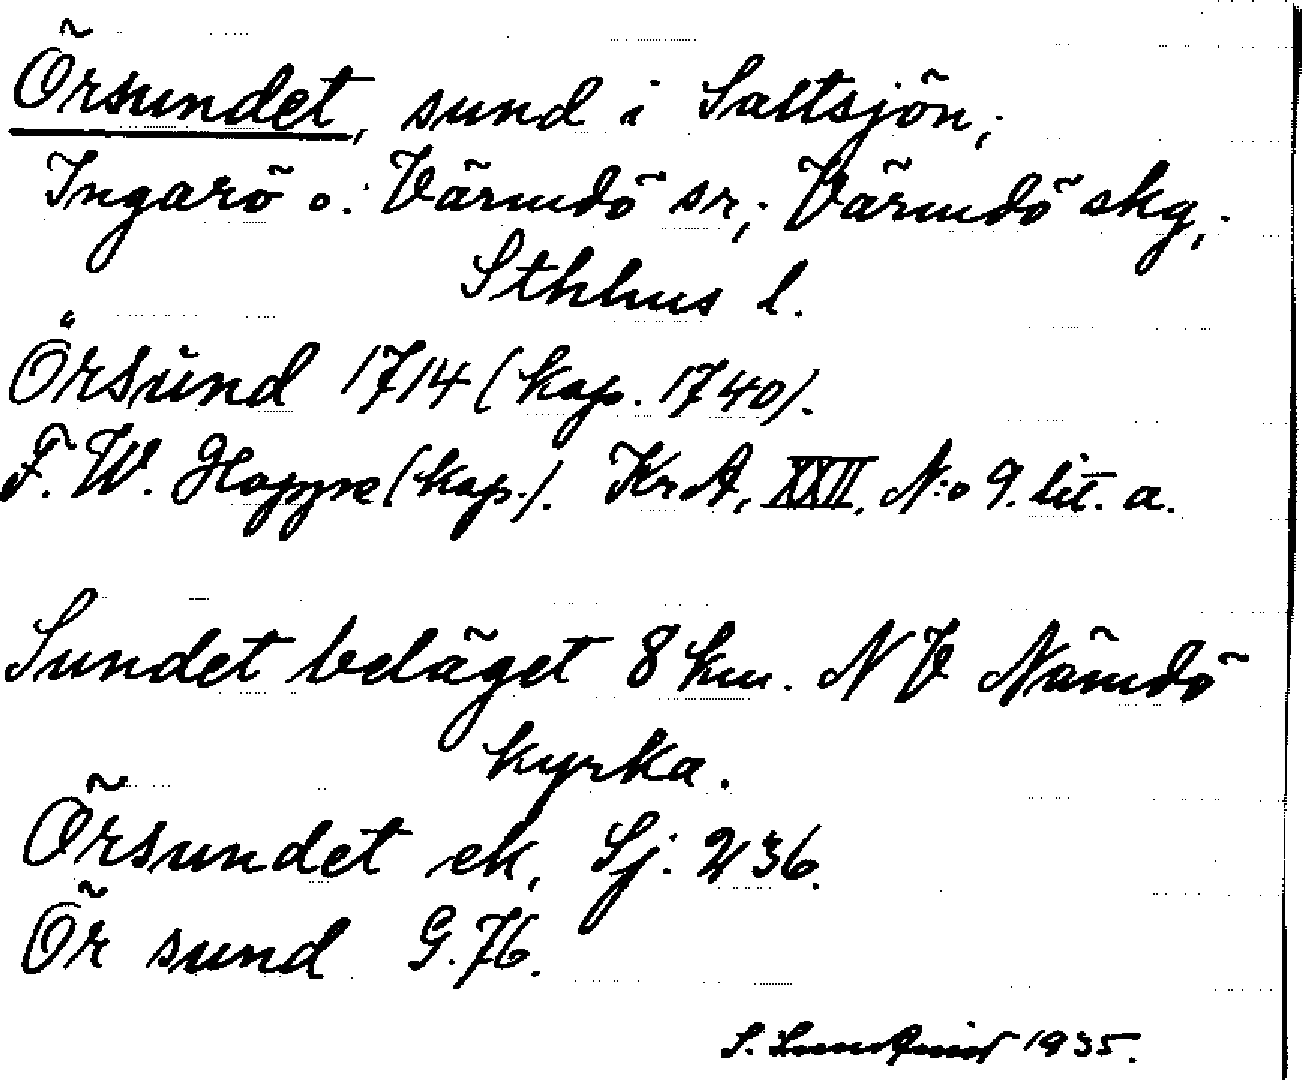 Örsundet, sund i Saltsjön;
Ingarö o. Värmdö sr; Värmdö skg,
Sthlms l.
Örsund 1714 (kop. 1740).
F. W. Hoppe (kop.). KrA, XXII. N:o 9. lit. a.
Sundet beläget 8 km. NV Nämdö
kyrka.
Örsundet ek, Sj: 236.
Ör sund G. 76.
S. 1935.